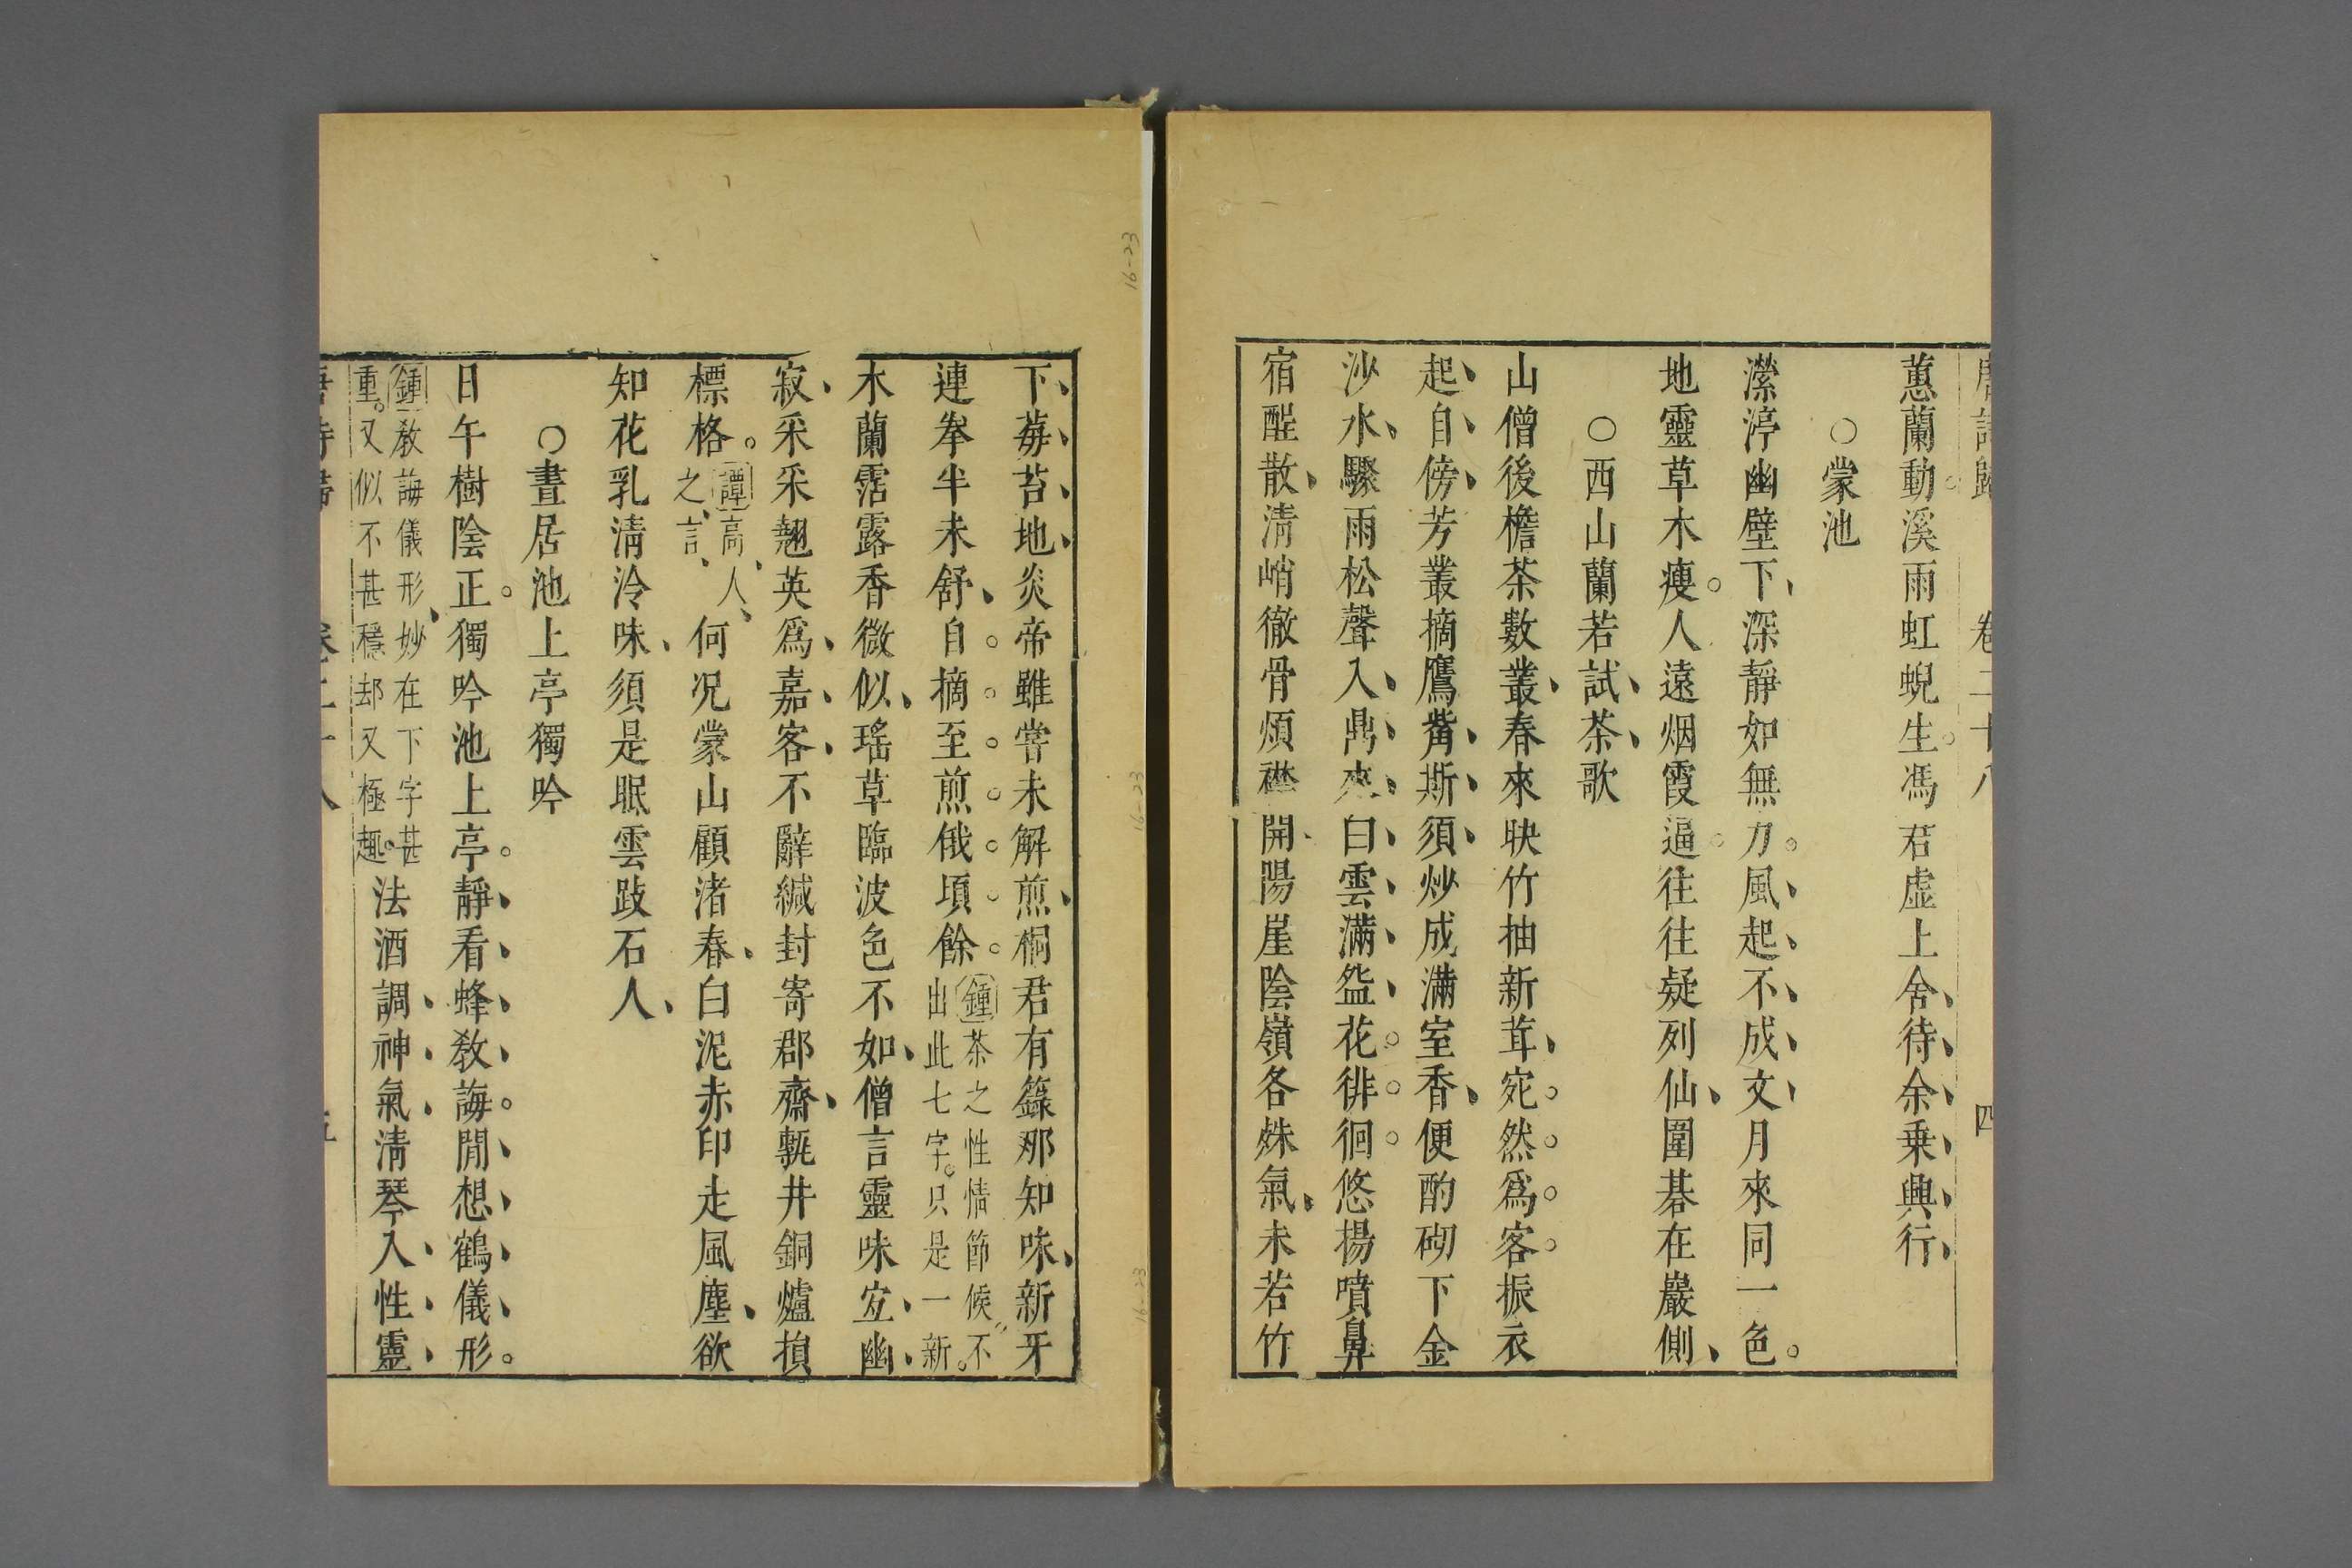 唐詩歸 卷二十八 四
蕙蘭動溪雨虹蜺生馮君虛上舍待余乗興行
○蒙池
瀠渟幽壁下深靜如無力風起不成文月來同一色
地靈草木瘦人遠烟霞逼往往疑列仙圍碁在巖側
○西山蘭若試茶歌
山僧後檐茶數叢春來映竹抽新茸宛然爲客振衣
起自傍芳叢摘鷹觜斯須炒成滿室香便酌砌下金
沙水驟雨松聲入鼎來白雲滿盌花徘徊悠揚噴鼻
宿酲散清峭徹骨煩襟開陽崖陰嶺各殊氣未若竹
下莓苔地炎帝雖嘗未解煎桐君有籙那知味新牙
連拳半未舒自摘至煎俄頃餘鍾茶之性情節候不
出此七字只是一新
木蘭霑露香微似瑤草臨波色不如僧言靈味宜幽
寂采采翹英爲嘉客不辭緘封寄郡齋甎井銅爐損
標格譚高人
之言何況蒙山顧渚春白泥赤印走風塵欲
知花乳清泠味須是眠雲跂石人
○晝居池上亭獨吟
日午樹陰正獨吟池上亭靜看蜂教誨閒想鶴儀形
鍾教誨儀形妙在下字甚
重又似不甚穩却又極趣法酒調神氣清琴入性靈
唐詩歸 卷二十八 五